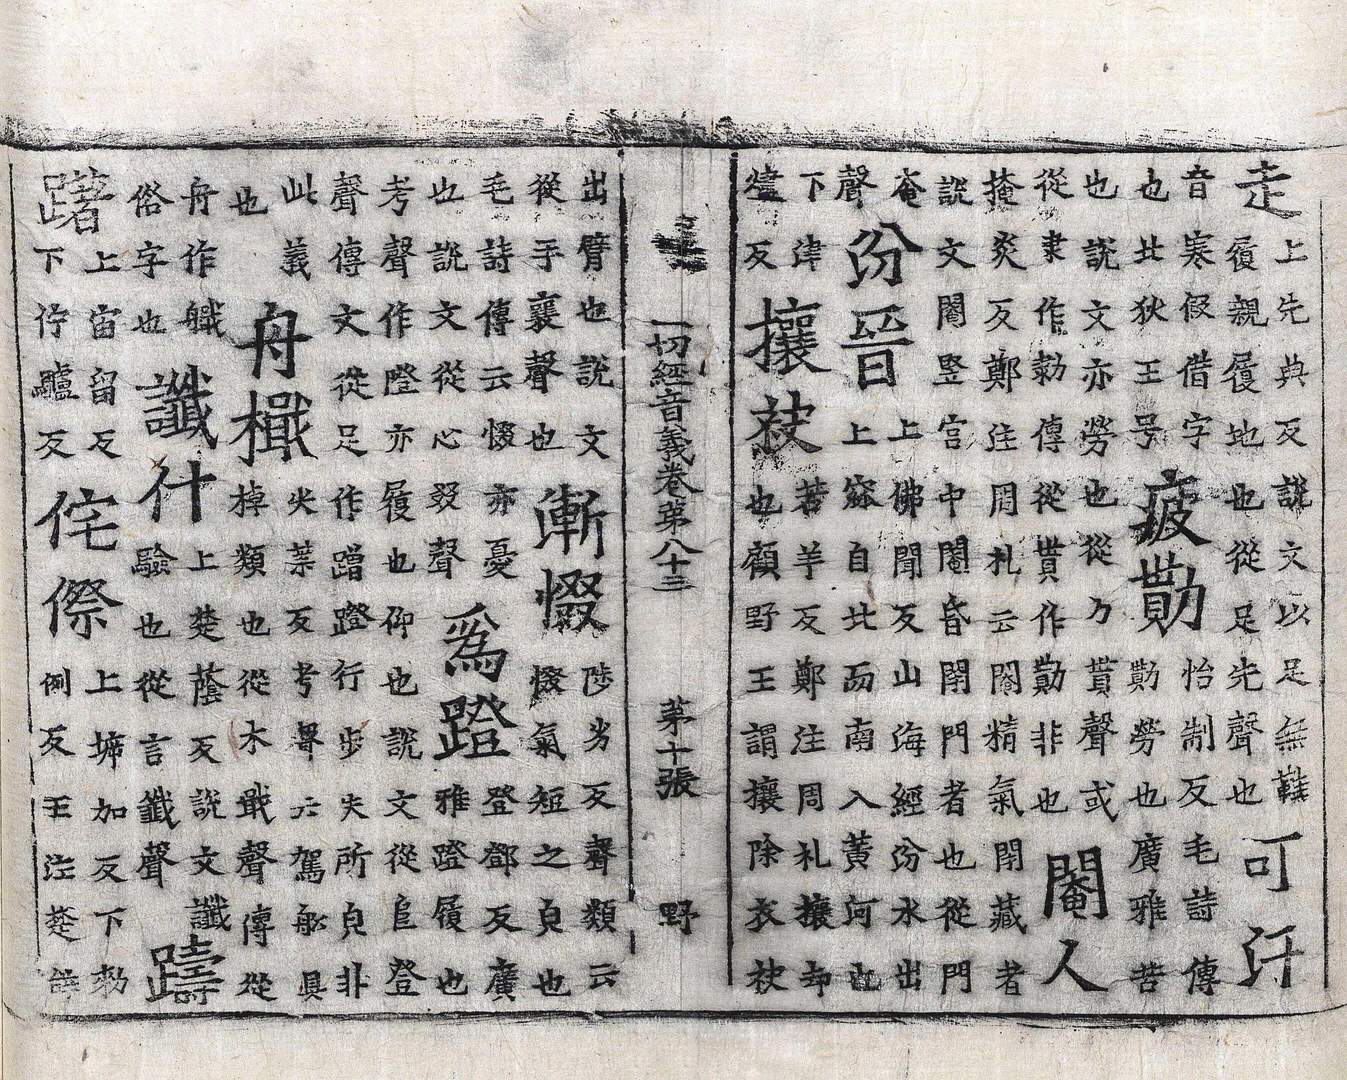 走上先典反說文以足無鞋
履親履地也從足先聲也可汗
音寒假借字
也北狄王号
疲勩怡制反毛詩傳
勩勞也廣雅苦
也說文亦勞也從力貰聲或
從隶作勚傳從貰作勩非也
閹人
掩炎反鄭注周礼云閹精氣閉藏者
說文閹竪宮中閹昏閉門者也從門
奄
聲
汾晉上佛聞反山海經汾水出
上窳自北而南入黃河也
下津
燼反
攘袚若羊反鄭注周礼攘却
也顧野王謂攘除衣袂
一切經音義卷第八十三 第十張 野
出臂也說文
從手襄聲也
慚惙陟劣反聲類云
惙氣短之皃也
毛詩傳云惙亦憂
也說文從心叕聲
為蹬登鄧反廣
雅蹬履也
考聲作隥亦履也仰也說文從𨸏登
聲傳文從足作蹭蹬行步失所皃非
此義
也
舟檝尖葉反考聲云駕舩具
棹類也從木戢聲傳從
舟作艥
俗字也
讖什上楚蔭反說文讖
驗也從言韱聲
躊
躇上宙留反
下佇驢反
侘傺上坼加反下勑
例反王注楚辝